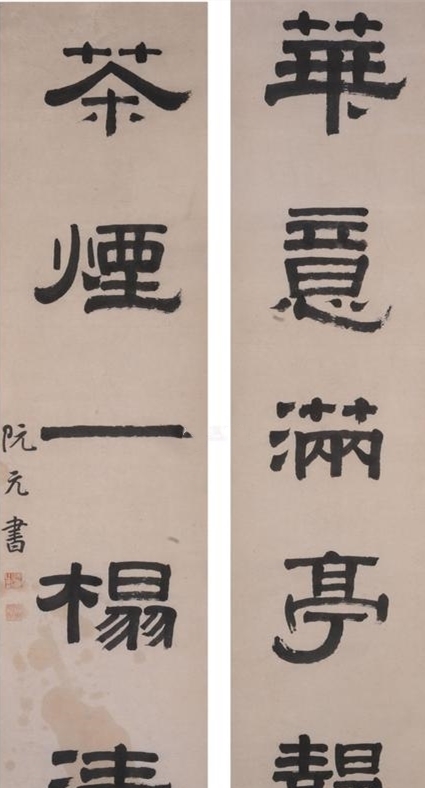 華意滿亭
茶煙一榻清
阮元書